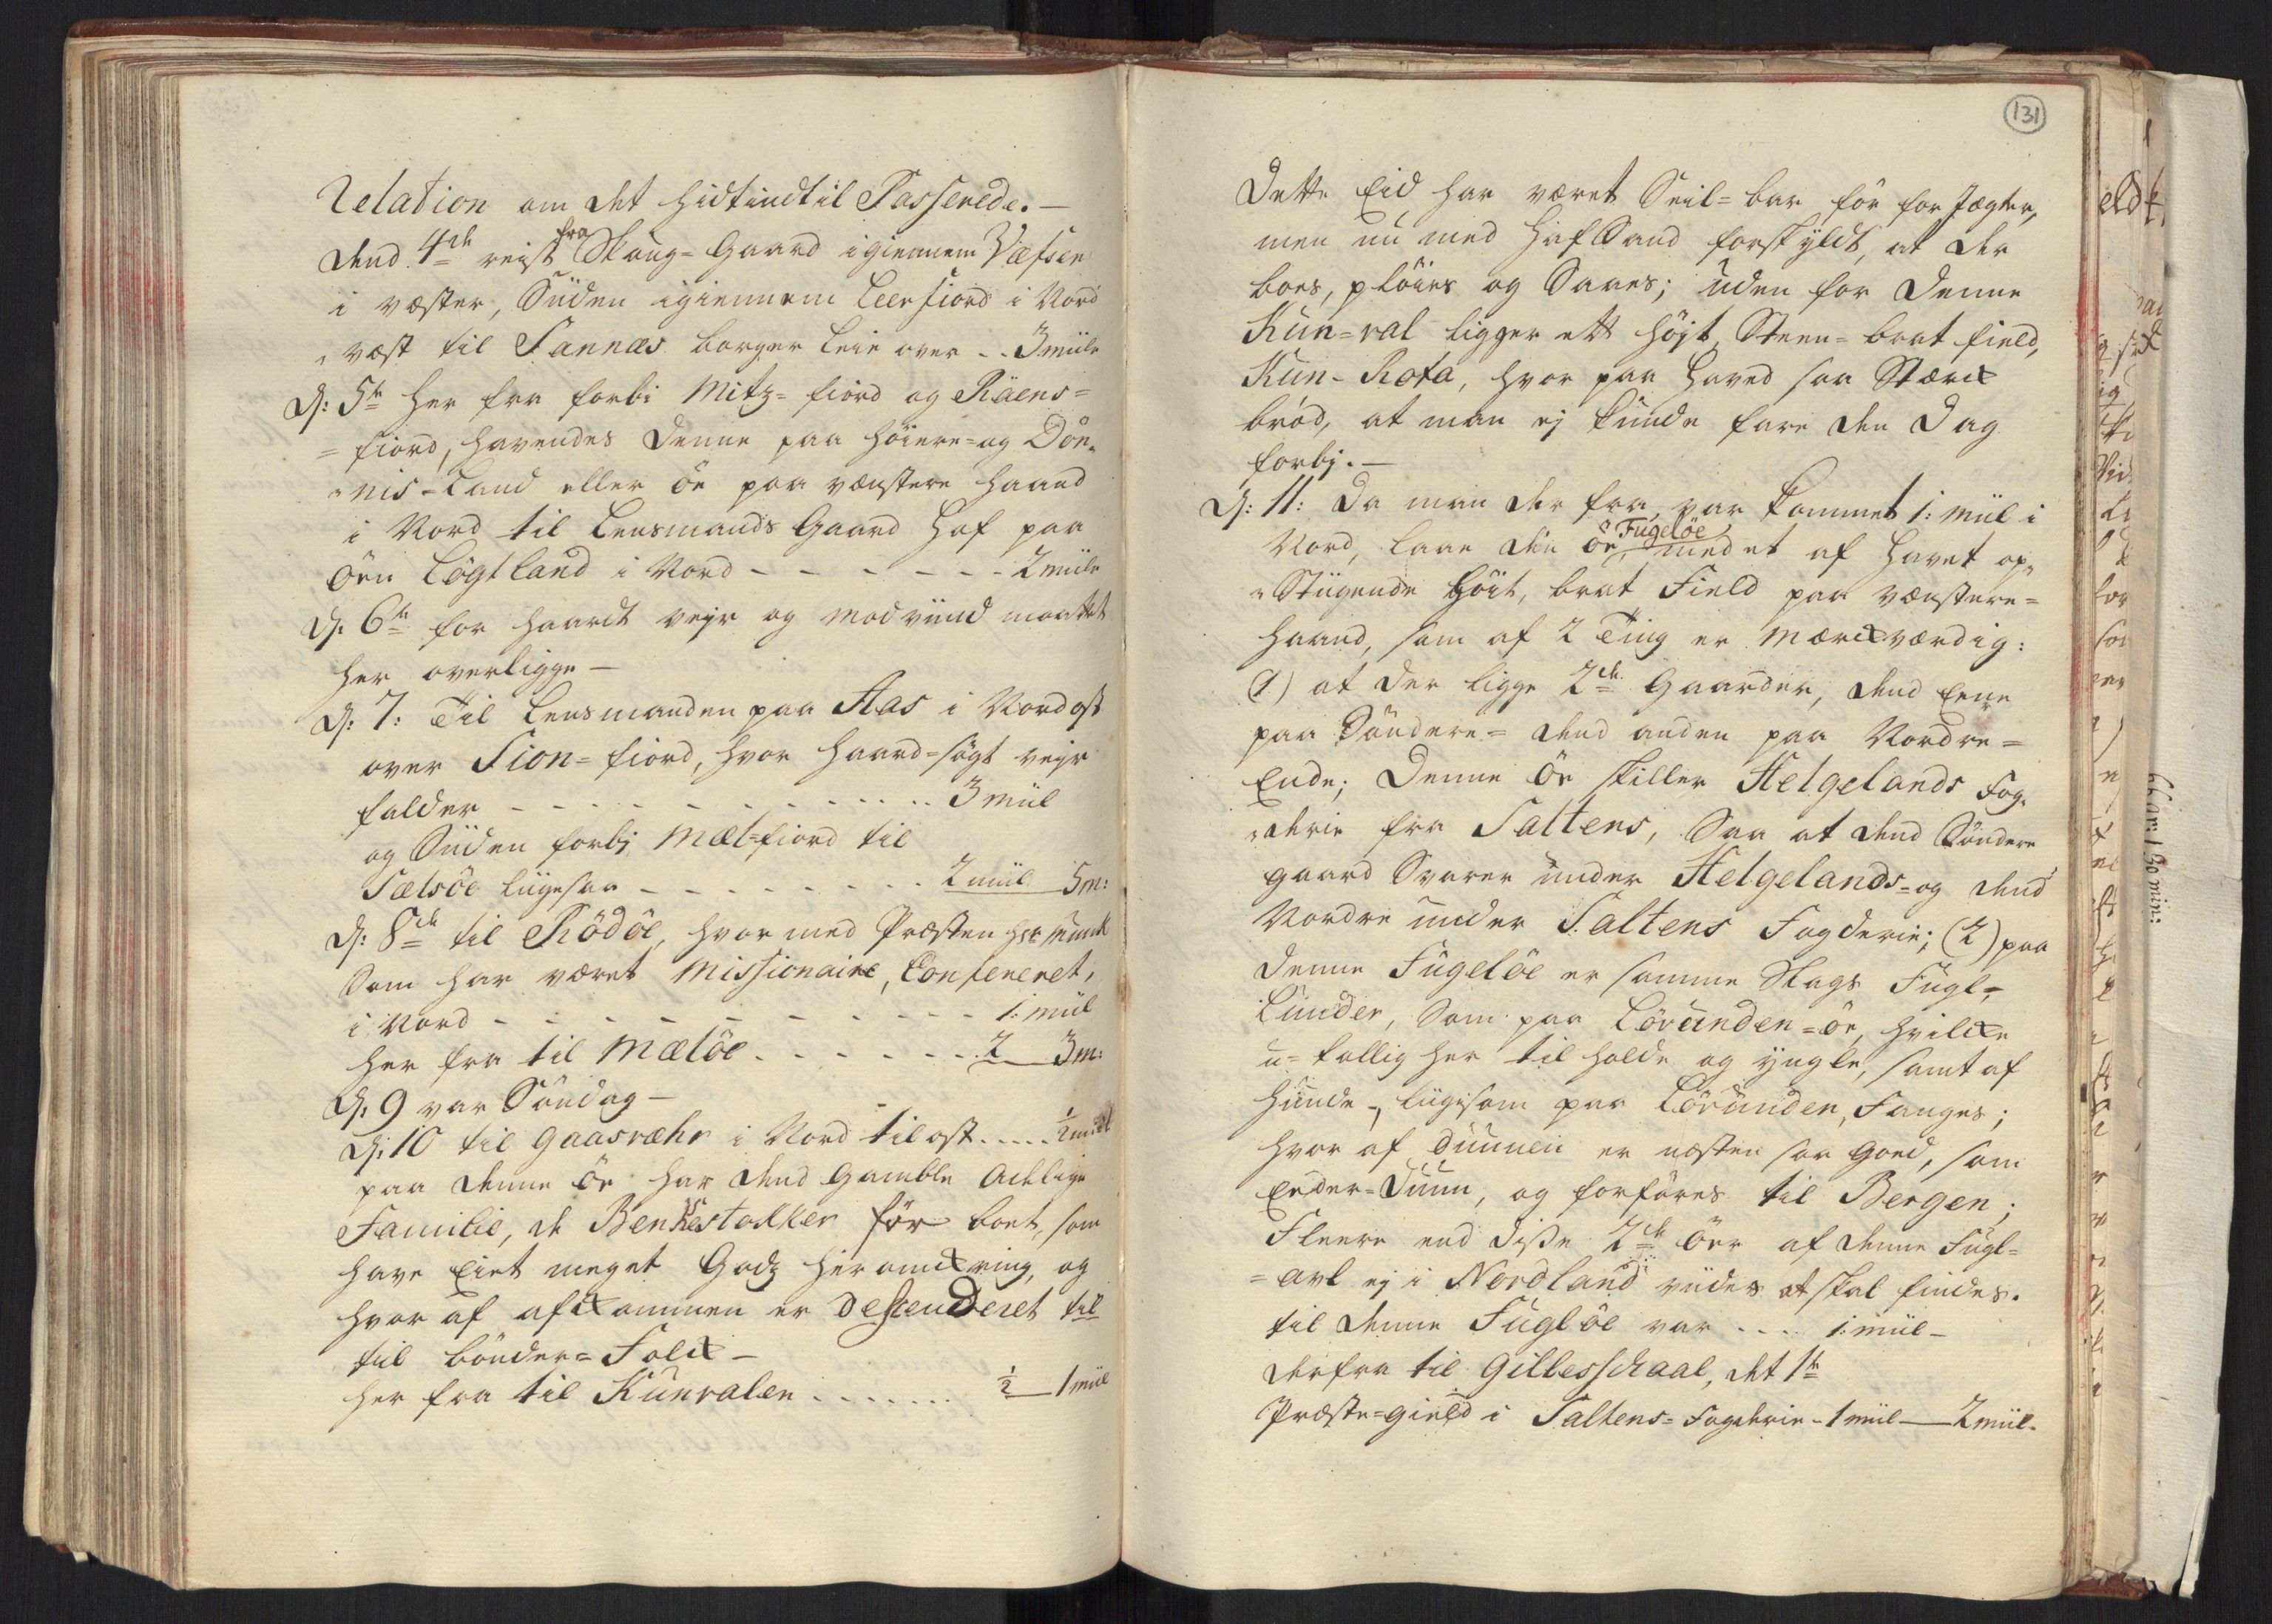 Relation om det hidtindtil Passerede. —
Dend 4de reist fra Skaug-Gaard igiennem Væfsen
i væster, Süden igiennem Leerfiord i Nord
"væst til Sannæs borger Leie over - - 3 miile
D: 5te her fra forbi Mitz-fiord og Räens=
=fiord, havendes denne paa høiere- og Dön"
"nis-Land eller öe paa venstere haand
i Nord til Lensmands Gaard Hof paa
Öen Løgtland i Nord - - - - - - - 2 miile
D: 6te for haardt vejr og modviind maattet
her overligge —
D: 7: Til Lensmanden paa Aas i Nordost
over Sion=fiord, hvor haard=søgt vejr
falder - - - - - - - - - - - - 3 miil
og Süden forbj Mæl=fiord til
Sælsöe liigesaa - - - - - - - - 2 miil 5 m:
D: 8de til Rödöe, hvor med Præsten Hr Munk
Som har været Missionaire, Confereret,
i Nord - - - - - - - - - - 1: miil
her fra til Mælöe - - - - - - 2 3 m:
D: 9 var Söndag —
D: 10 til Gaasværhr i Nord til ost - - - - ½ miil
paa denne öe har dend gamble Adelige
Familie, de Benkestokker för boet, som
have Eiet meget Godz her omkring, og
hvor af afkommen er descenderet till
til bönder=Folck —
her fra til Kunvalen - - - - - - ½ 1 miil
131
Dette Eid har været Seil=bar för for Jægter,
men nu med HafSand forfyldt, at der
boes, pløies og Saaes; uden for denne
Kün=val ligger ett højt, Steen=brat field,
Kün-Rota, hvor paa Haved saa Stærck
bröd, at man ej kunde fare den Dag
forbj. —
D: 11: Da man der fra var kommet 1: miil i
Nord, laae den öe Fugelöe med et af Havet op"
"Stiigende höit, brat Field paa venstere=
haand, som af 2 Ting er mærckværdig:
(1) at der ligge 2de Gaarder, dend Eene
paa Söndere= dend anden paa Nordre=
Ende; denne Öe skiller Helgelands Fog"
"derie fra Saltens, Saa at dend Söndere
gaard Svarer under Helgelands= og dend
Nordre under Saltens Fogderie; (2) paa
denne Fugelöe er samme Slags Fugl,
Lunder, Som paa Lövunden=öe, hvilcke
u=tallig her til holde og yngle, samt af
Hunde, liigesom paa Lövunden, Fanges;
hvor af duunen er næsten saa goed, som
Eider=Duun, og forföres til Bergen;
Fleere end disse 2de Öer af denne Fugl=
=avl ej i Nordland viides at skal findes.
til denne Fuglöe var - - - 1: miil -
derfra til Gillesschaal, det 1te
Præste=gield i Saltens= Fogderie - 1 miil — 2 miil.